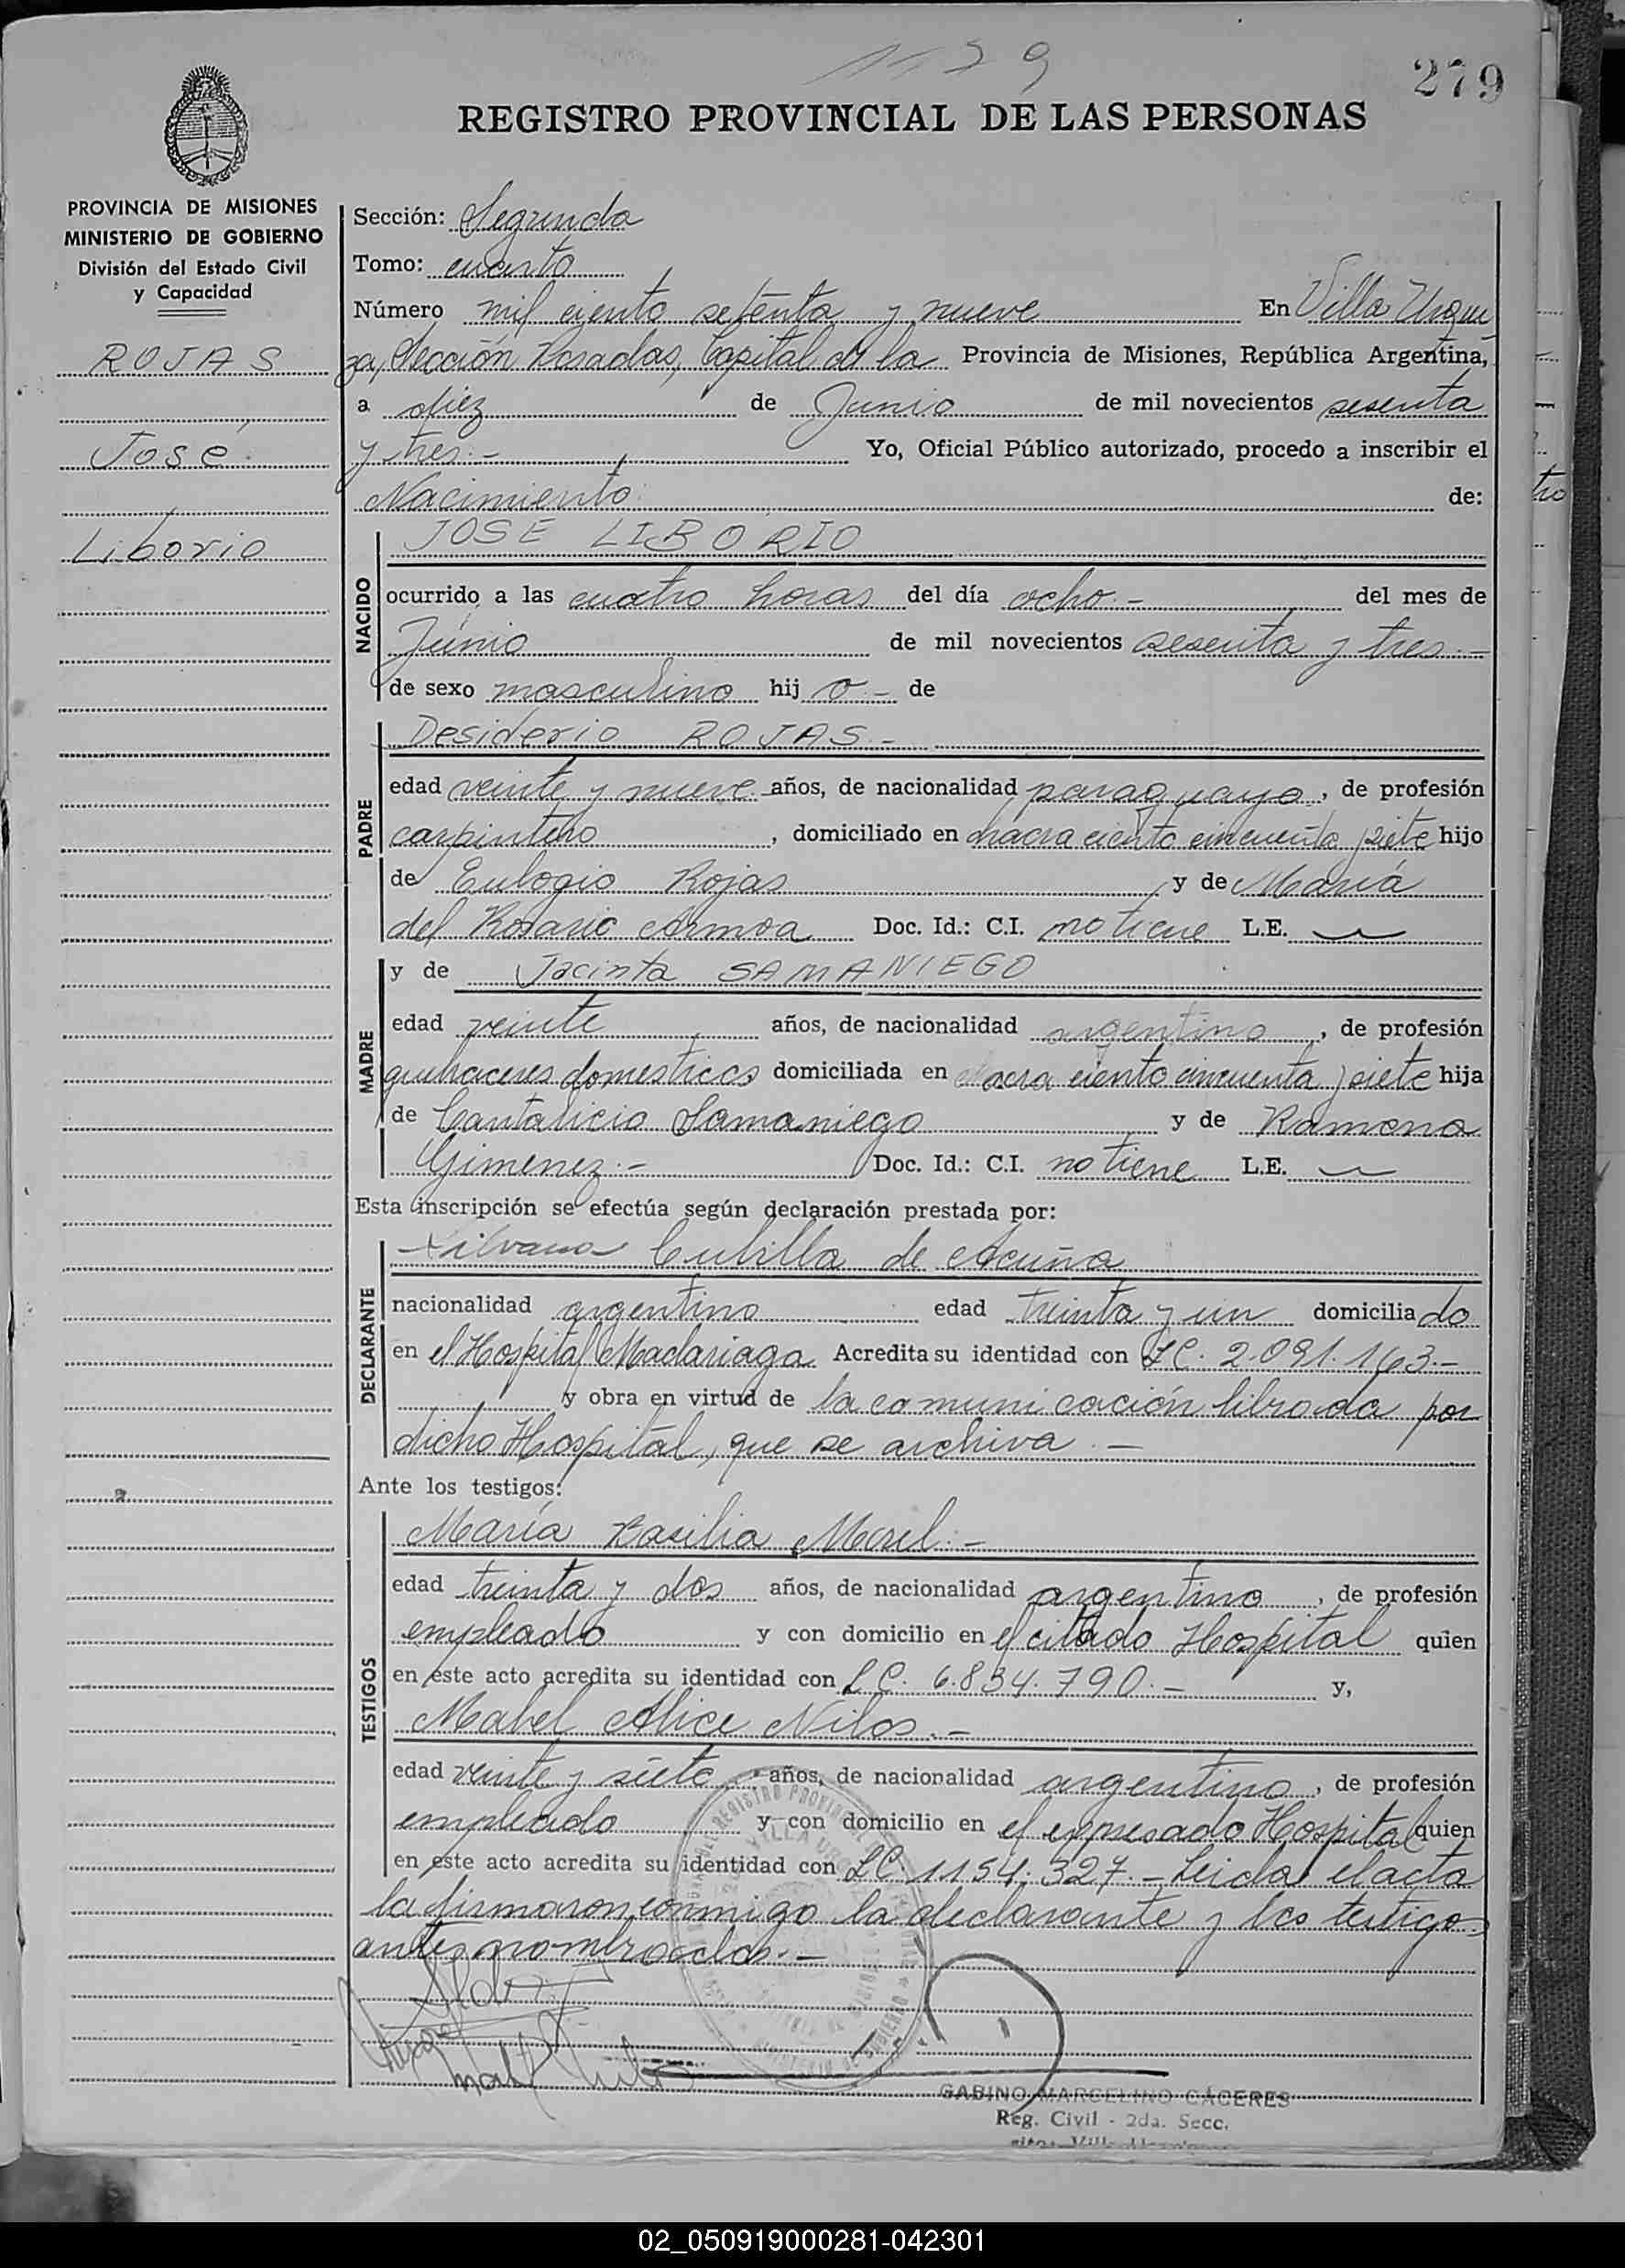 279
REGISTRO PROVINCIAL DE LAS PERSONAS
PROVINCIA DE MISIONES
MINISTERIO DE GOBIERNO
División del Estado Civil
y Capacidad
ROJAS
José
Liborio
Sección: Segunda
Tomo: cuarto
Número mil ciento setenta y nueve En Villa Urqui
za, Sección Posadas, Capital de la Provincia de Misiones, República Argentina,
a diez de Junio de mil novecientos sesenta
y tres.- Yo, Oficial Público autorizado, procedo a inscribir el
Nacimiento de:
NACIDO
JOSE LIBORIO
ocurrido a las cuatro horas del día ocho.- del mes de
Junio de mil novecientos sesenta y tres.-
de sexo masculino hij o.- de
PADRE
Desiderio ROJAS.-
edad veinte y nueve años, de nacionalidad paraguayo, de profesión
carpintero, domiciliado en chacra ciento cincuenta y siete hijo
de Eulogio Rojas y de María
del Rosario Armoa Doc. Id.: C.I. no tiene L.E.
MADRE
y de Jacinta SAMANIEGO
edad veinte años, de nacionalidad argentina, de profesión
quehaceres domesticos domiciliada en chacra ciento cincuenta y siete hija
de Cantalicio Samaniego y de Ramona
Gimenez.- Doc. Id.: C.I. no tiene L.E.
Esta inscripción se efectúa según declaración prestada por:
DECLARANTE
Cubilla de Acuña
nacionalidad argentina edad treinta y un domicilia do
en el Hospital Madariaga. Acredita su identidad con LC. 2.091.163.-
y obra en virtud de la comunicación librada por
dicho Hospital, que se archiva.-
Ante los testigos:
TESTIGOS
María Basilia Morel.-
edad treinta y dos años, de nacionalidad argentina, de profesión
empleado y con domicilio en el citado Hospital quien
en este acto acredita su identidad con LC. 6.834.790.- y,
Mabel Alice Nilos.-
edad veinte y siete años, de nacionalidad argentina, de profesión
empleado y con domicilio en el expresado Hospital quien
en este acto acredita su identidad con LC. 1154.327.- Leida el acta
la firmaron conmigo la declarante y los testigos
antes nombrados.-
GABINO MARCELINO CÁCERES
Reg. Civil - 2da. Secc.
02_050919000281-042301